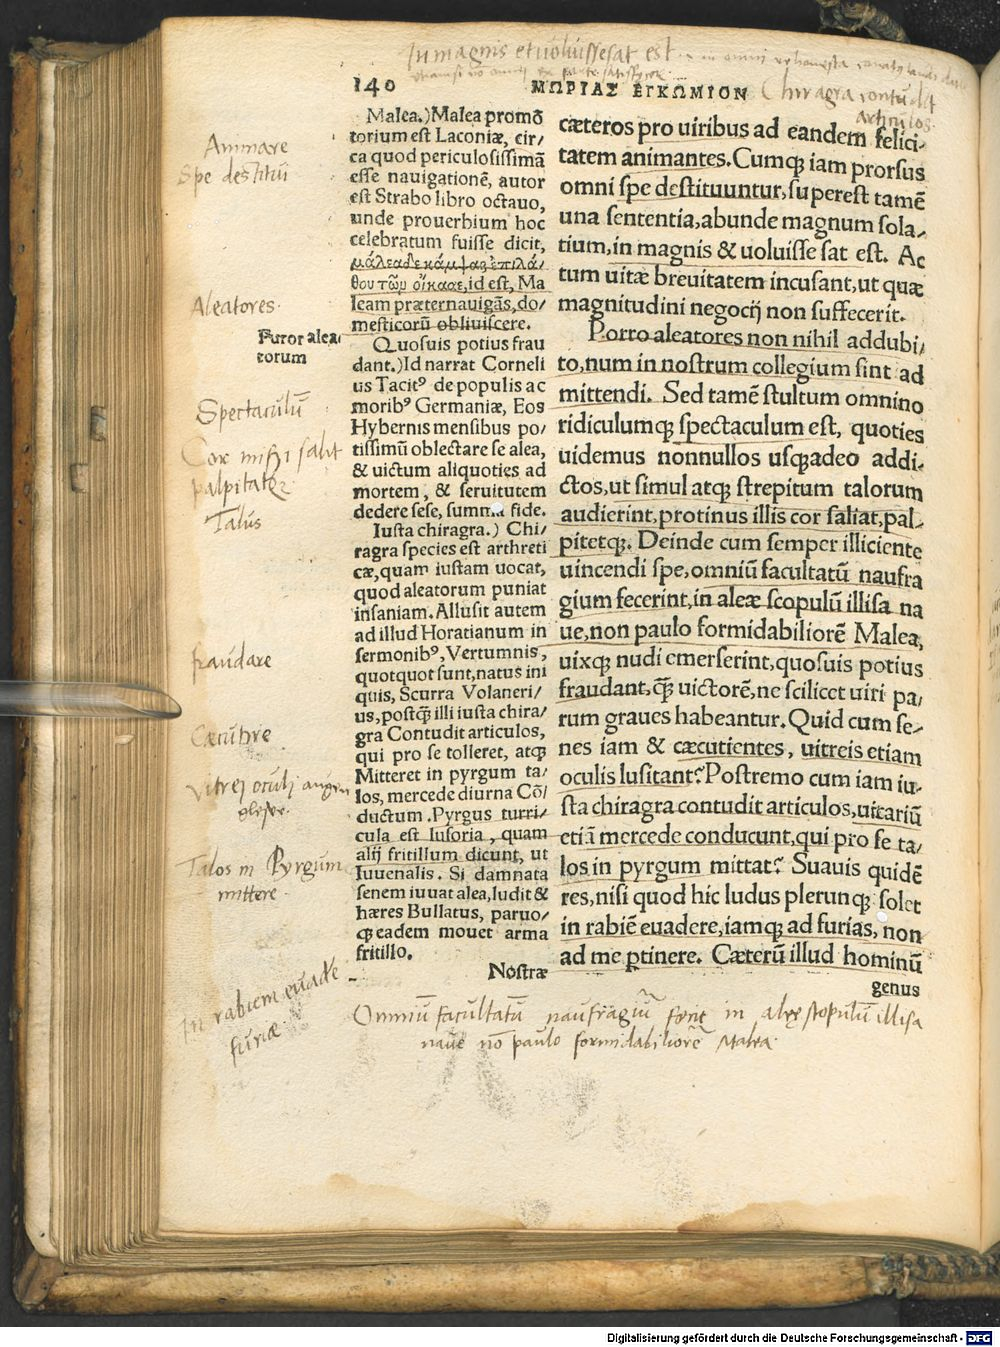 In magnis et voluisse sat est
Chiragra contudit
articulos
140 ΜΩΡΙΑΣ ΕΓΚΩΜΙΟΝ
Animare
Spe destitui
Aleatores
Furor alea-
torum
Spectaculũ
Cor mihi salit
palpitatqz
Talus
fraudare
Cæcutire
Vitrei oculi
Talos in Pyrgum
mittere
In rabiem euade
furiæ
Malea.) Malea promõ
torium est Laconiæ, cir/
ca quod periculosissimã
esse nauigationẽ, autor
est Strabo libro octauo,
unde prouerbium hoc
celebratum fuisse dicit,
μάλεα δε κάμψας ἐπιλά/
θου τῶν οἴκαδε, id est, Ma
leam præternauigãs, do/
mesticorũ obliuiscere.
Quosuis potius frau
dant.) Id narrat Corneli
us Tacitꝰ de populis ac
moribꝰ Germaniæ, Eos
Hybernis mensibus po/
tissimũ oblectare se alea,
& uictum aliquoties ad
mortem, & seruitutem
dedere sese, summa fide.
Iusta chiragra.) Chi/
ragra species est arthreti
cæ, quam iustam uocat,
quod aleatorum puniat
insaniam. Allusit autem
ad illud Horatianum in
sermonibꝰ, Vertumnis,
quotquot sunt, natus ini
quis, Scurra Volaneri/
us, postq̃ illi iusta chira/
gra Contudit articulos,
qui pro se tolleret, atqꝫ
Mitteret in pyrgum ta/
los, mercede diurna Cõ/
ductum. Pyrgus turri/
cula est lusoria, quam
alij fritillum dicunt, ut
Iuuenalis. Si damnata
senem iuuat alea, ludit &
hæres Bullatus, paruo/
qꝫ eadem mouet arma
fritillo.
Nostræ
cæteros pro uiribus ad eandem felici-
tatem animantes. Cumqꝫ iam prorsus
omni spe destituuntur, superest tamẽ
una sententia, abunde magnum sola/
tium, in magnis & uoluisse sat est. Ac
tum uitæ breuitatem incusant, ut quæ
magnitudini negocij non suffecerit.
Porro aleatores non nihil addubi/
to, num in nostrum collegium sint ad
mittendi. Sed tamẽ stultum omnino
ridiculumqꝫ spectaculum est, quoties
uidemus nonnullos usqꝫadeo addi-
ctos, ut simul atqꝫ strepitum talorum
audierint, protinus illis cor saliat, pal-
pitetqꝫ. Deinde cum semper illiciente
uincendi spe, omniũ facultatũ naufra
gium fecerint, in aleæ scopulũ illisa na
ue, non paulo formidabiliorẽ Malea,
uixqꝫ nudi emerserint, quosuis potius
fraudant, q̃ uictorẽ, ne scilicet uiri pa/
rum graues habeantur. Quid cum se/
nes iam & cæcutientes, uitreis etiam
oculis lusitant? Postremo cum iam iu/
sta chiragra contudit articulos, uicariũ
etiã mercede conducunt, qui pro se ta/
los in pyrgum mittat? Suauis quidẽ
res, nisi quod hic ludus plerunqꝫ solet
in rabiẽ euadere, iamqꝫ ad furias, non
ad me ꝑtinere. Cæterũ illud hominũ
genus
Omniũ facultatũ naufragiũ facere in aleę scopulũ illisa
naue nõ paulo formidabiliorẽ Malea
Digitalisierung gefördert durch die Deutsche Forschungsgemeinschaft - DFG